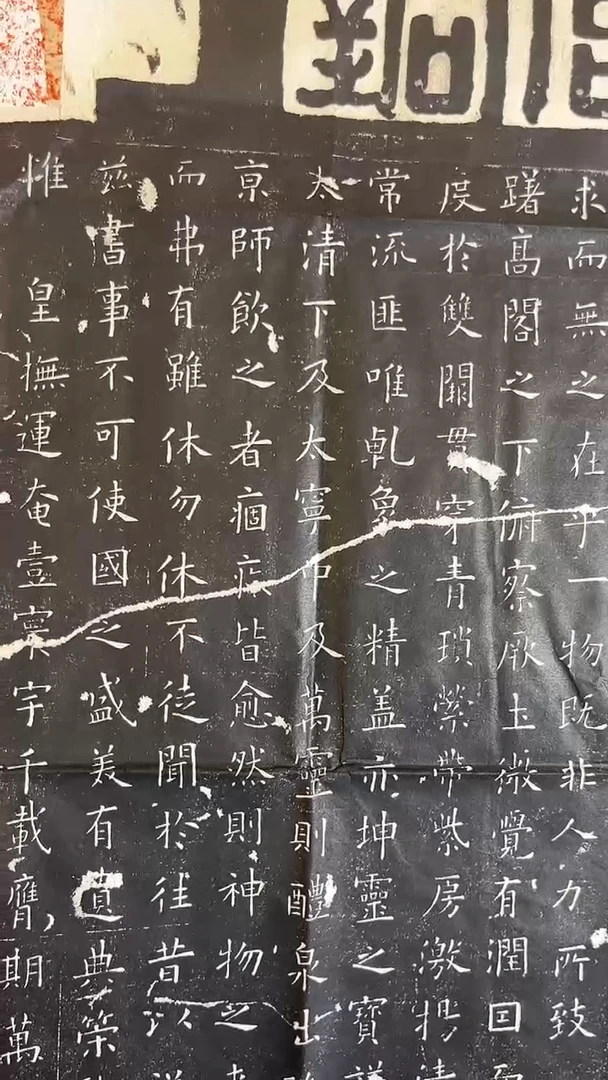 求而無之在乎一物既非人力所致
躇高閣之下俯察厥土微覺有潤因
度於雙闕貫穿青瑣縈帶紫房激揚清
常流匪唯乹象之精蓋亦坤靈之寶謹
太清下及太寧中及萬靈則醴泉出
京師飲之者痼疾皆愈然則神物之
而弗有雖休勿休不徒聞於往昔以
茲書事不可使國之盛美有遺典策
惟 皇撫運奄壹寰宇千載膺期萬